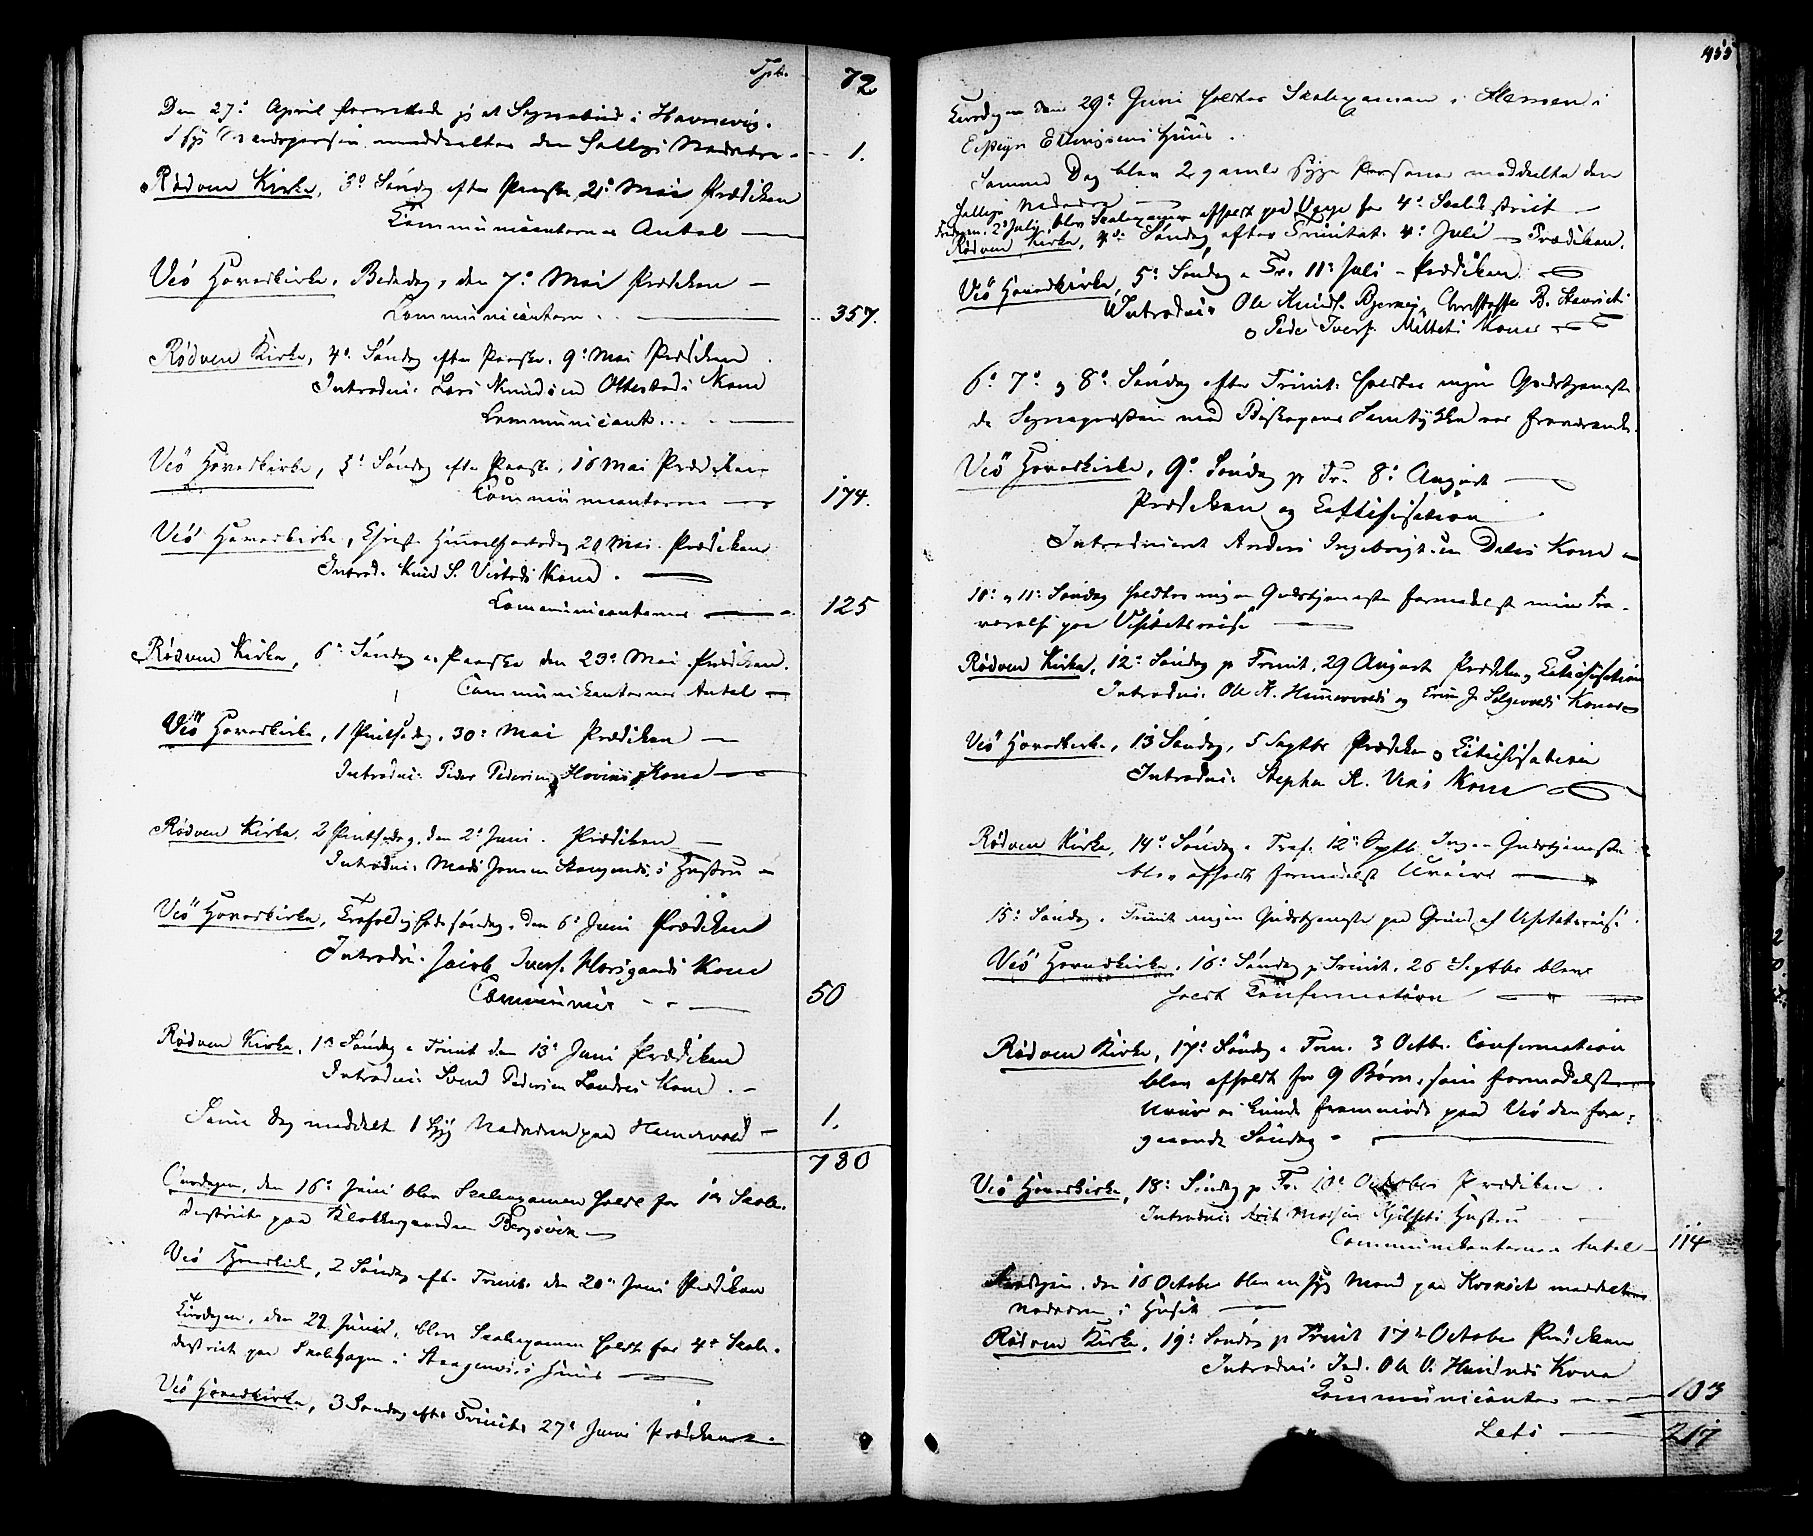 Tpt. 72
Den 27de April foretoges jeg et Sognebud i Havnevig.
1 Syg meddeltes den Hellige Nadvere - 1.
Rødven Kirke, 3de Søndag efter Paaske, 2den Mai Prædiken
Communicanternes Antal —
Veö Hovedkirke, Bededag, den 7de Mai Prædiken —
Communicanterne - 357.
Rødven Kirke, 4de Søndag efter Paaske, 9de Mai Prædiken
Introduc: Lars Knudsen Ottestads Kone
Communicant. . .
Veö Hovedkirke, 5te Søndag efter Paaske, 16 Mai Prædiken
Communicanterne — 174.
Veö Hovedkirke, Christi Himmelfartsdag 20 Mai. Prædiken
Introd. Knud S. Vestads Kone. —
Communicanternes — 125
Rødven Kirke, 6te Søndag e. Paaske den 23de Mai. Prædiken.
Communikanternes Antal —
Veö Hovedkirke, 1 Pintsedag, 30te Mai Prædiken —
Introduc: Peder Pedersen Hovins Kone —
Rødven Kirke, 2 Pintsedag, den 2de Juni. Prædiken —
Introduc: Mads Jensen Hustru
Veö Hovedkirke, Trefoldighedssøndag, den 6te Juni Prædiken
Introduc. Jacob Iversen Horsgaards Kone
Communic - - 50
Rødven Kirke, 1ste Søndag e. Trinit den 13de Juni Prædiken
Introduc: Svend Pedersen Kone. -
Samme Dag meddelt 1 Syg Nadveren paa Hammervold - 1.
780
Onsdagen, den 16de Juni blev Skolexamen holdt for 1ste Skole-
district paa Klokkergaarden Bergsvik —
Veö Hovedkirke, 2 Søndag eft. Trinit. den 20de Juni Prædiken
Tirsdagen, den 22. Juni, blev Skolexamen holdt for 4de Skole-
district paa i Huus —
Veö Hovedkirke, 3 Søndag efter Trinit. 27de Juni Prædiken
455
Tirsdagen den 29de Juni holdtes Skolexamen i i
Ellingsens Huus.
Samme Dag blev 2 gamle syge Personer meddelte den
hellige Nadvere —
2de Juli, blev Skolexamen afholdt paa for 4de Skoledistrict —
Rødven Kirke, 4de Søndag efter Trinitat. 4de Juli — Prædiken.
Veö Hovedkirke, 5te Søndag e. Tr. 11te Juli - Prædiken
Introduc: Ole Knuds. Christoffer B.
og Peder Ivers. Mittets Koner
6te 7de og 8de Søndag efter Trinit: holdtes ingen Gudstjeneste
da Sognepræsten med Biskopens Samtykke var fraværende.
Veö Hovedkirke, 9de Søndag p. Tr. 8de August —
Prædiken og Catechisation
Introduceret Anders Ingebrigtsen Dales Kone —
10de og 11te Søndag holdtes ingen Gudstjeneste formedelst min Fra-
værelse paa Visitatsreise —
Rødven Kirke, 12te Søndag p. Trinit. 29 August Prædiken og Catechisation
Introduc: Ole A. Hammervolds og J. Koner
Veö Hovedkirke, 13 Søndag, 5 Septbr Prædiken og Catechisation
Introduc: Stephen A. Kone
Rødven Kirke, 14de Søndag e. Tref. 12te Septb. Ingen Gudstjeneste
blev afholdt formedelst Uveir —
15de Søndag e. Trinit ingen Gudstjeneste paa Grund af Visitatsreise.
Veö Hovedkirke, 16de Søndag p. Trinit. 26 Septbr blev
holdt Confirmation —
Rødven Kirke, 17de Søndag e. Trin. 3 Octbr. Confirmation
blev afholdt for 9 Børn, som formedelst
Uveir ei kunde fremmøde paa Veö den fore-
gaaende Søndag. —
Veö Hovedkirke, 18de Søndag p. Tr. 10de October Prædiken.
Introduc: Madsen Hustru
Communikanternes Antal - 114
den 16 October blev en syg Mand paa meddelt
Nadveren i Huset —
Rødven Kirke, 19de Søndag p. Trinit 17de October Prædiken
Introduc: Ind. Ole O. Kone
Communicanter — 103
Lats — 217